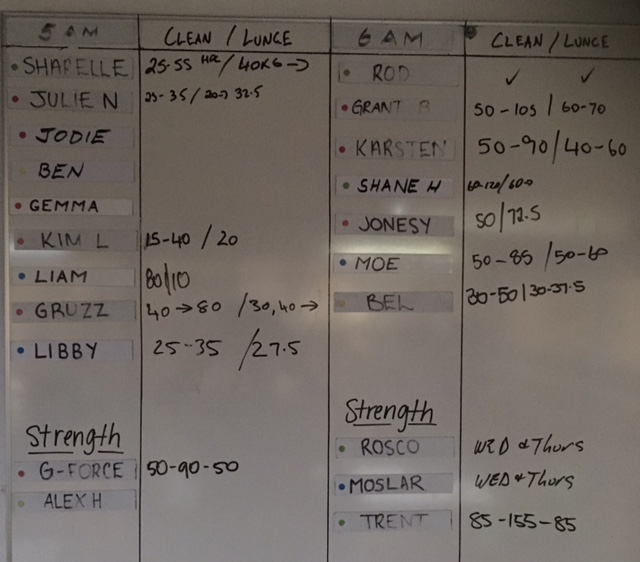 5 AM CLEAN / LUNCE
SHARELLE 25-55 / 40KG →
JULIE N 25-35 / 20→ 32.5
JODIE
BEN
GEMMA
KIM L 15-40 / 20
LIAM 80/10
GRUZZ 40 → 80 / 30,40 →
LIBBY 25-35 / 27.5
Strength
G-FORCE 50-90-50
ALEX H
6 AM CLEAN / LUNCE
ROD ✓ ✓
GRANT B 50-105 / 60-70
KARSTEN 50-90/40-60
SHANE H
JONESY 50/72.5
MOE 50-85 / 50-60
BEL 30-50/30-37.5
Strength
ROSCO WED & Thurs
MOSLAR WED & Thurs
TRENT 85-155-85